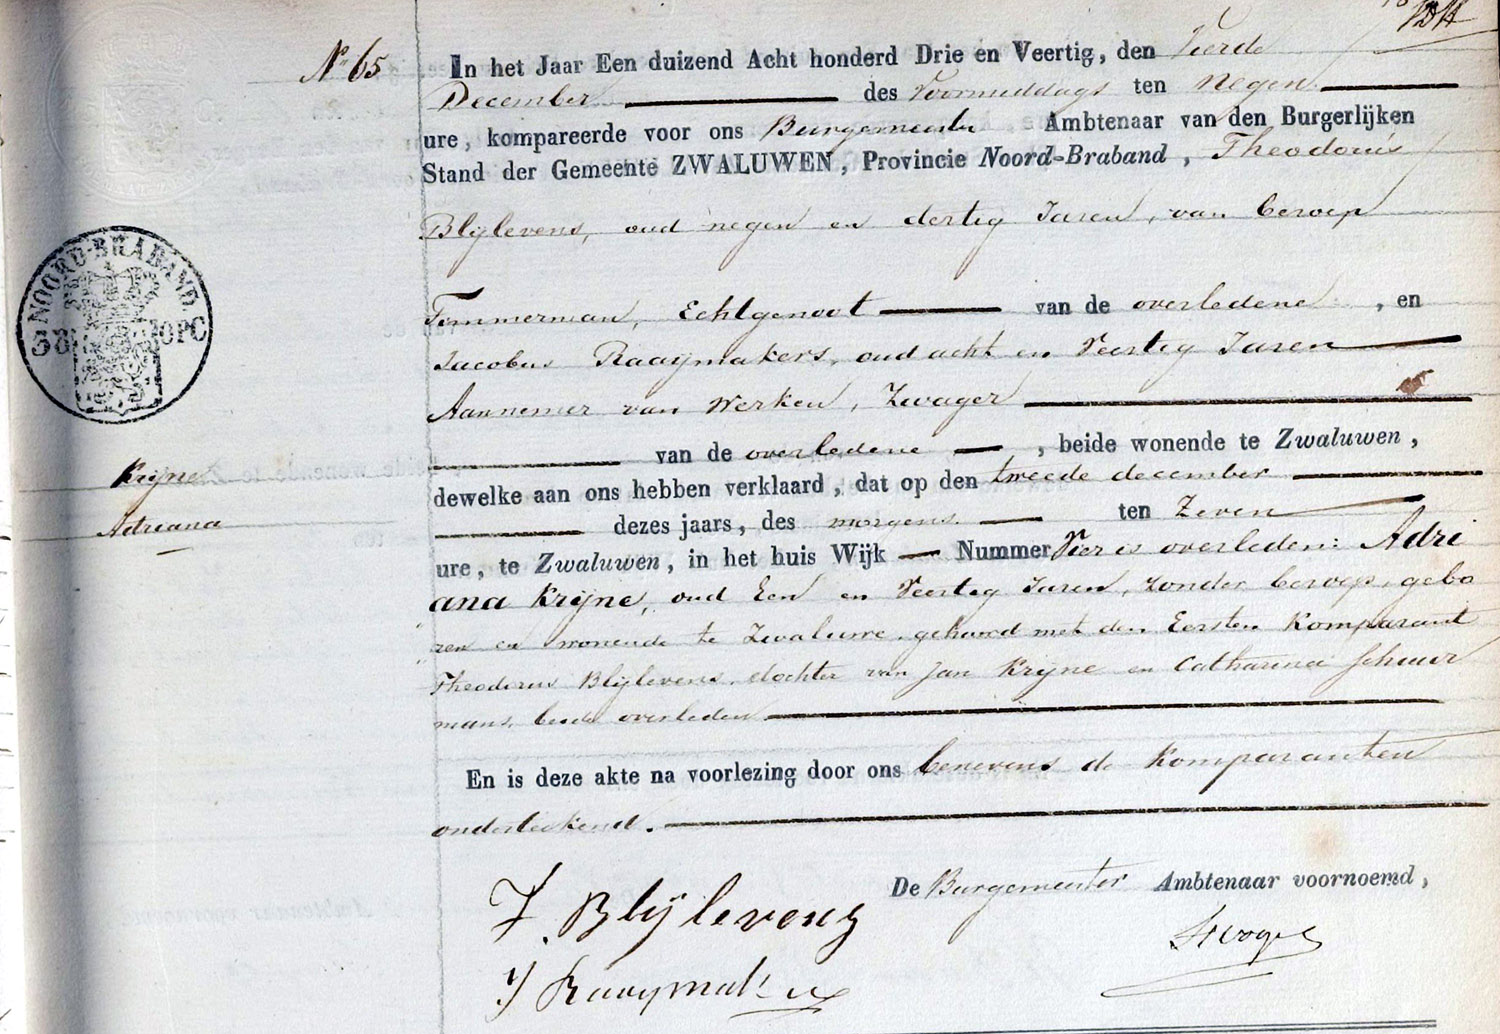 N° 65
In het Jaar Een duizend Acht honderd Drie en Veertig, den Vierde
December des Voormiddags ten Negen
ure, kompareerde voor ons Burgemeester Ambtenaar van den Burgerlijken
Stand der Gemeente ZWALUWEN, Provincie Noord-Braband, Theodorus
Blijlevens, oud negen en dertig Jaren, van beroep
Timmerman, Echtgenoot van de overledene, en
Jacobus Raaijmakers, oud acht en Veertig Jaren
Aannemer van Werken, Zwager
van de overledene, beide wonende te Zwaluwen,
dewelke aan ons hebben verklaard, dat op den tweede december
dezes jaars, des morgens ten Zeven
ure, te Zwaluwen, in het huis Wijk Nummer Vier is overleden: Adri
ana Krijne, oud Een en Veertig Jaren, Zonder beroep, gebo
ren en wonende te Zwaluwe, gehuwd met den Eersten Komparant
Theodorus Blijlevens, dochter van Jan Krijne en Catharina Schuur
mans, beide overleden
En is deze akte na voorlezing door ons benevens de Komparanten
onderteekend.
De Burgemeester Ambtenaar voornoemd,
T. Blijlevens
J Raaymakers
NOORD-BRABAND.
38 10PC
Krijne
Adriana